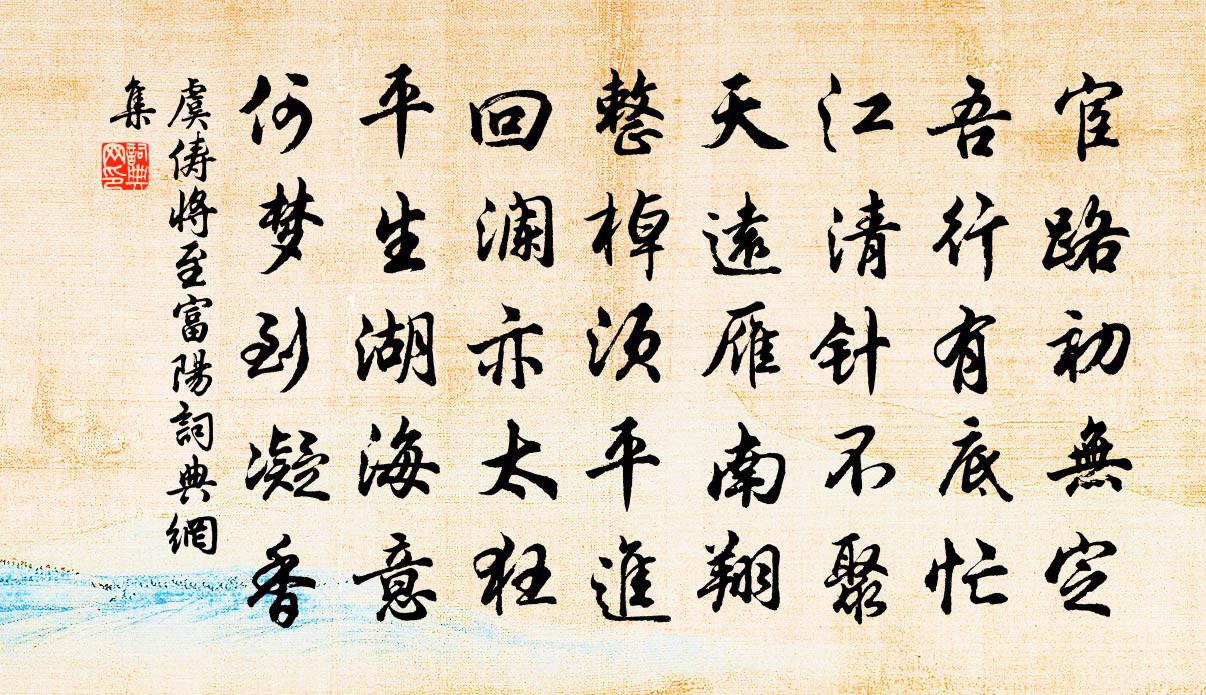 宦路初無定
吾行有底忙
江清针不聚
天遠雁南翔
整棹须平進
回澜亦太狂
平生湖海意
何梦到凝香
虞儔将至富陽詞典網
集
詞典網印